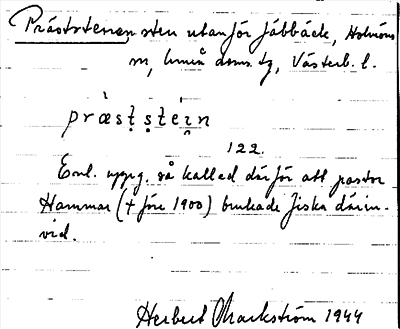 Präststenen sten utanför Jäbbäck, Holmöns
sn, Umeå doms. tg, Västerb. l.
præsṭṣtéin
122.
Enl. uppg. så kallad därför att pastor
Hammar († före 1900) brukade fiska därin-
vid.
Herbert Markström 1944